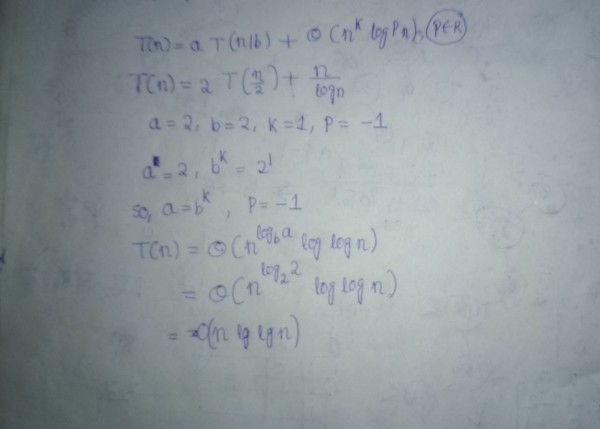 T(n) = a T(n/b) + Θ(n^k log^p n), p∈R
T(n) = 2 T(n/2) + n/logn
a = 2, b = 2, k = 1, P = -1
a = 2, b^k = 2^1
so, a = b^k, P = -1
T(n) = Θ(n^{log_b a} log log n)
= Θ(n^{log_2 2} log log n)
= Θ(n lg lg n)